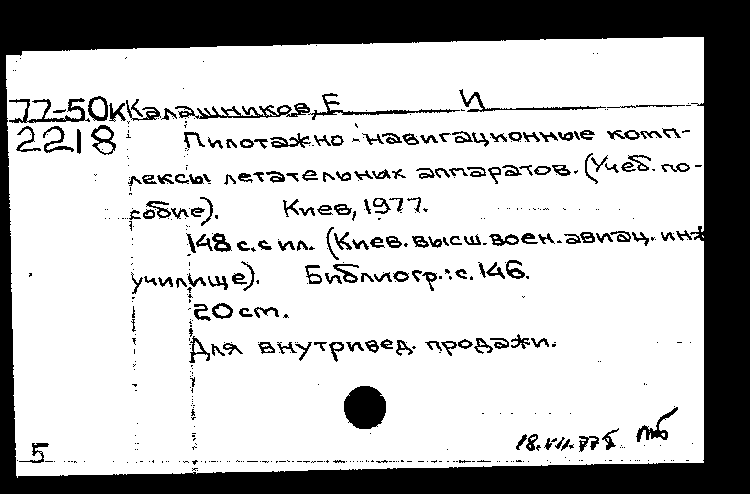 77-50К Калашников, Е И
2218 Пилотажно-навигационные комп-
лексы летательных аппаратов. (Учеб. по-
собие). Киев, 1977.
148 с. с ил. (Киев. высш. воен. авиац. инж
училище). Библиогр.: с. 146.
20 ст.
Для внутривед. продажи.
18.VII.77
5